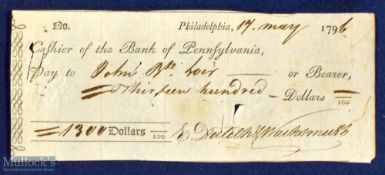 No. Philadelphia, 17. may 1796
Cashier of the Bank of Pennsylvania,
Pay to John Bte. or Bearer,
Thirteen hundred Dollars 100
1300 Dollars 100 E. Dutilh & Wachsmuth
Mullock's